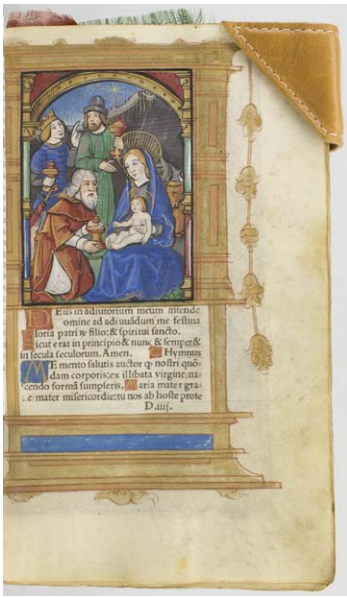 DEus in adiutorium meum intende
Domine ad adiuuãdum me festina
Gloria patri & filio: & spiritui sancto.
Sicut erat in principio & nunc & semper &
in secula seculorum. Amen. Hymnus
MEmento salutis auctor q nostri quõ-
dam corporis: ex illibata virgine, na-
scendo formã sumpseris. Maria mater gra-
e mater misericordie: tu nos ab hoste prote
D.iiij.